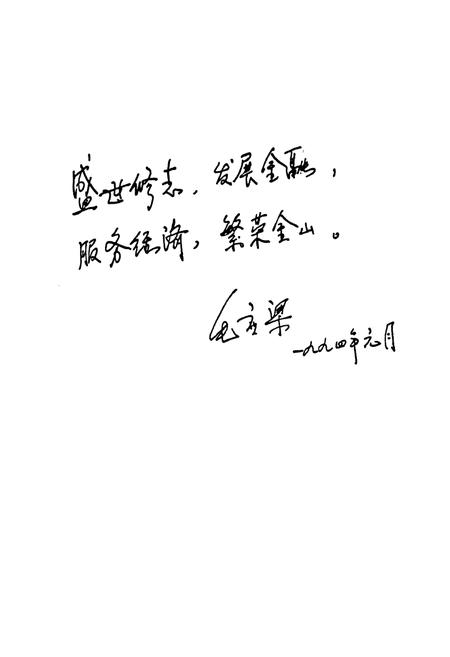 盛世修志，发展金融，
服务经济，繁荣金山。
毛应梁
一九九四年元月